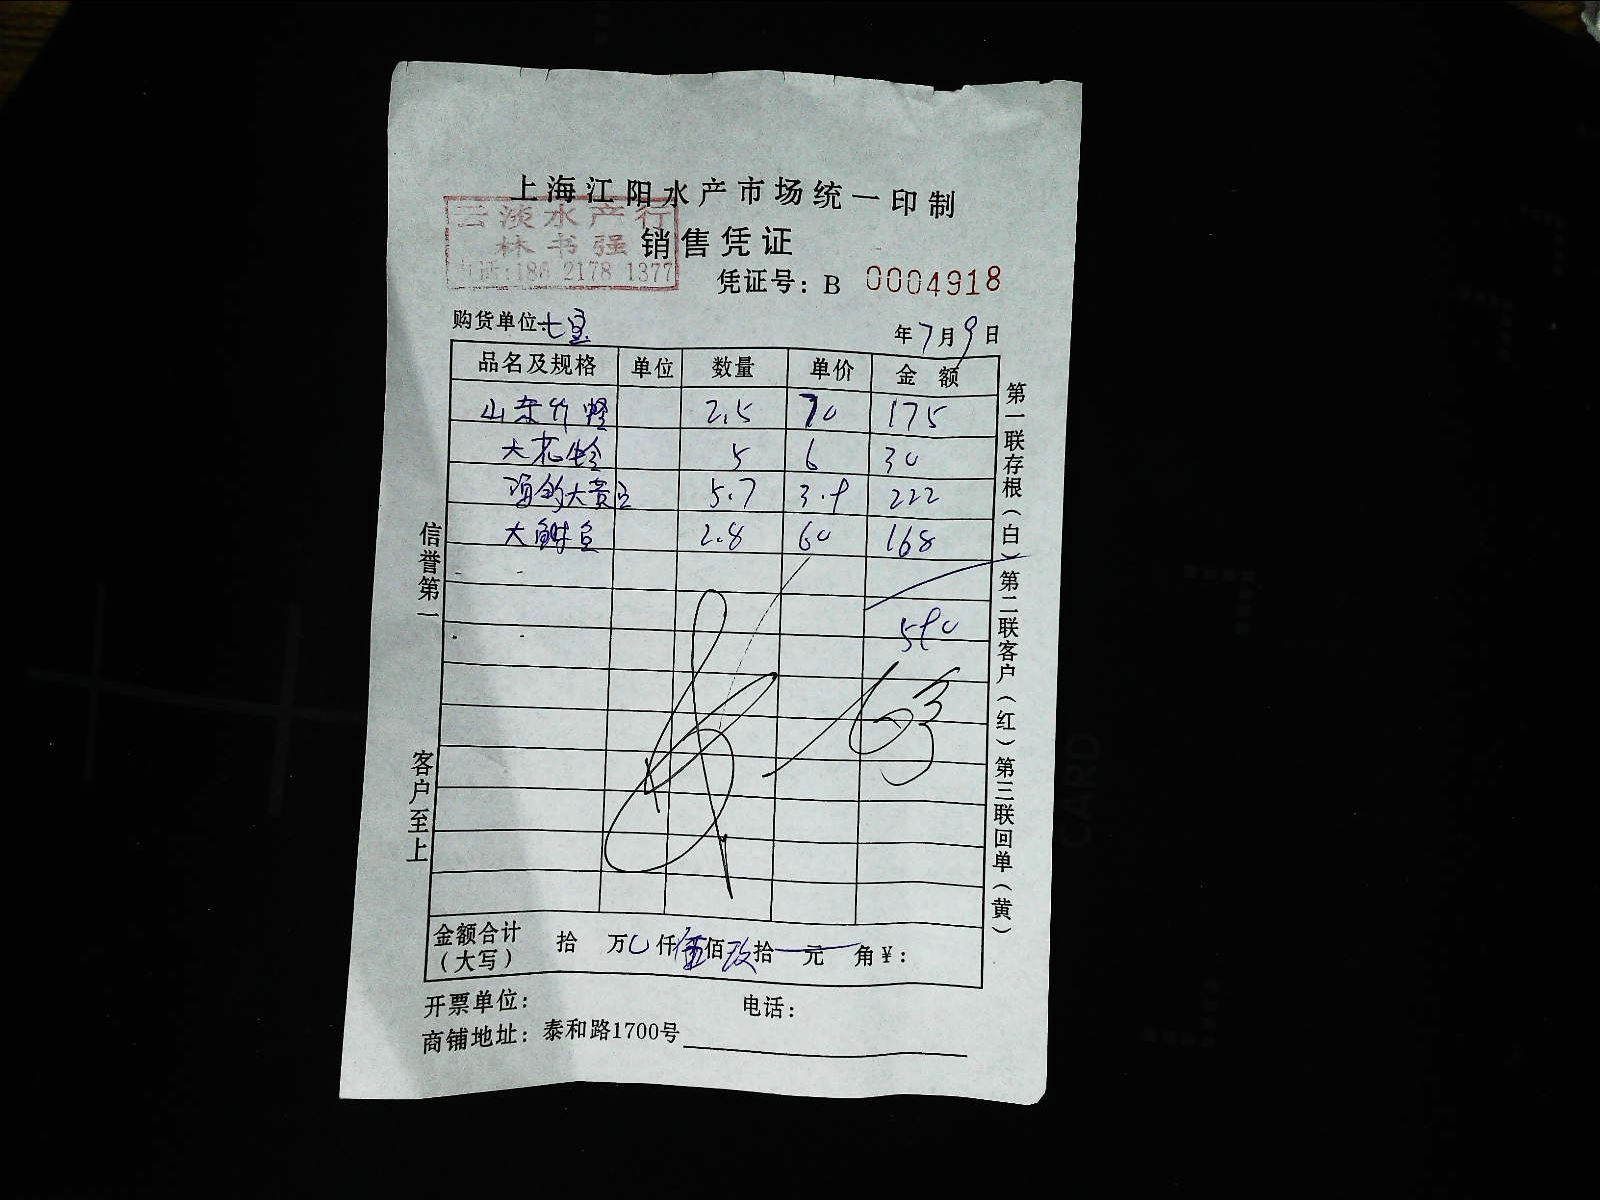 上海江阳水产市场统一印制
云淡水产行
林书强
电话:186 2178 1377
销售凭证
凭证号：B 0004918
购货单位:七宝
年7月9日
品名及规格 单位 数量 单价 金额
山东竹蛏 2.5 70 175
大花蛤 5 6 30
大黄 5.7 3.9 222
大鲜 2.8 60 168
590
金额合计（大写） 拾 万0仟伍佰玖拾 元 角¥：
开票单位： 电话：
商铺地址：泰和路1700号
信誉第一
客户至上
第一联存根（白）第二联客户（红）第三联回单（黄）